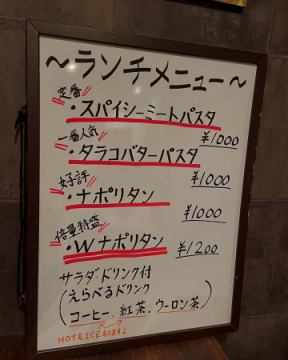 ～ランチメニュー～
定番
・スパイシーミートパスタ
¥1000
一番人気
・タラコバターパスタ
¥1000
好評
・ナポリタン
¥1000
倍量特盛
・Wナポリタン
¥1200
サラダドリンク付
(えらべるドリンク
コーヒー、紅茶、ウーロン茶)
HOT&ICEあります